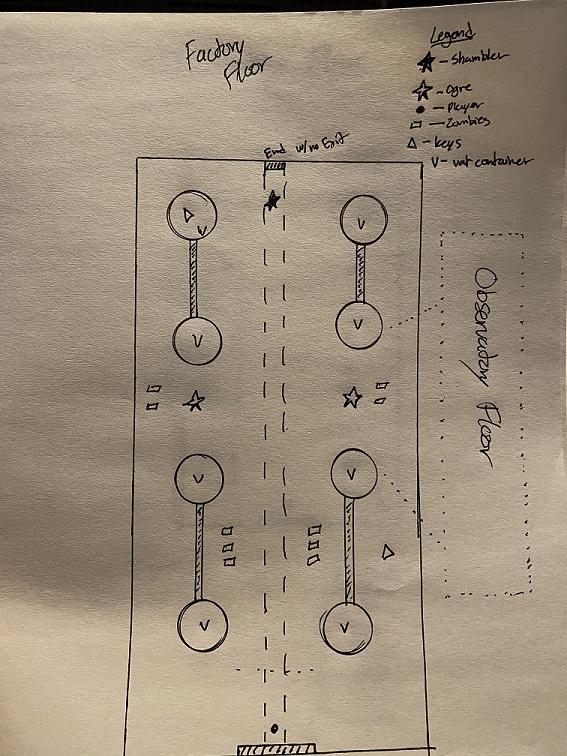 Factory
Floor
Legend
- Shambler
- Ogre
- Player
- Zombies
- keys
V - vat container
End w/ no Exit
V
V
V
V
Observatory Floor
V
V
V
V